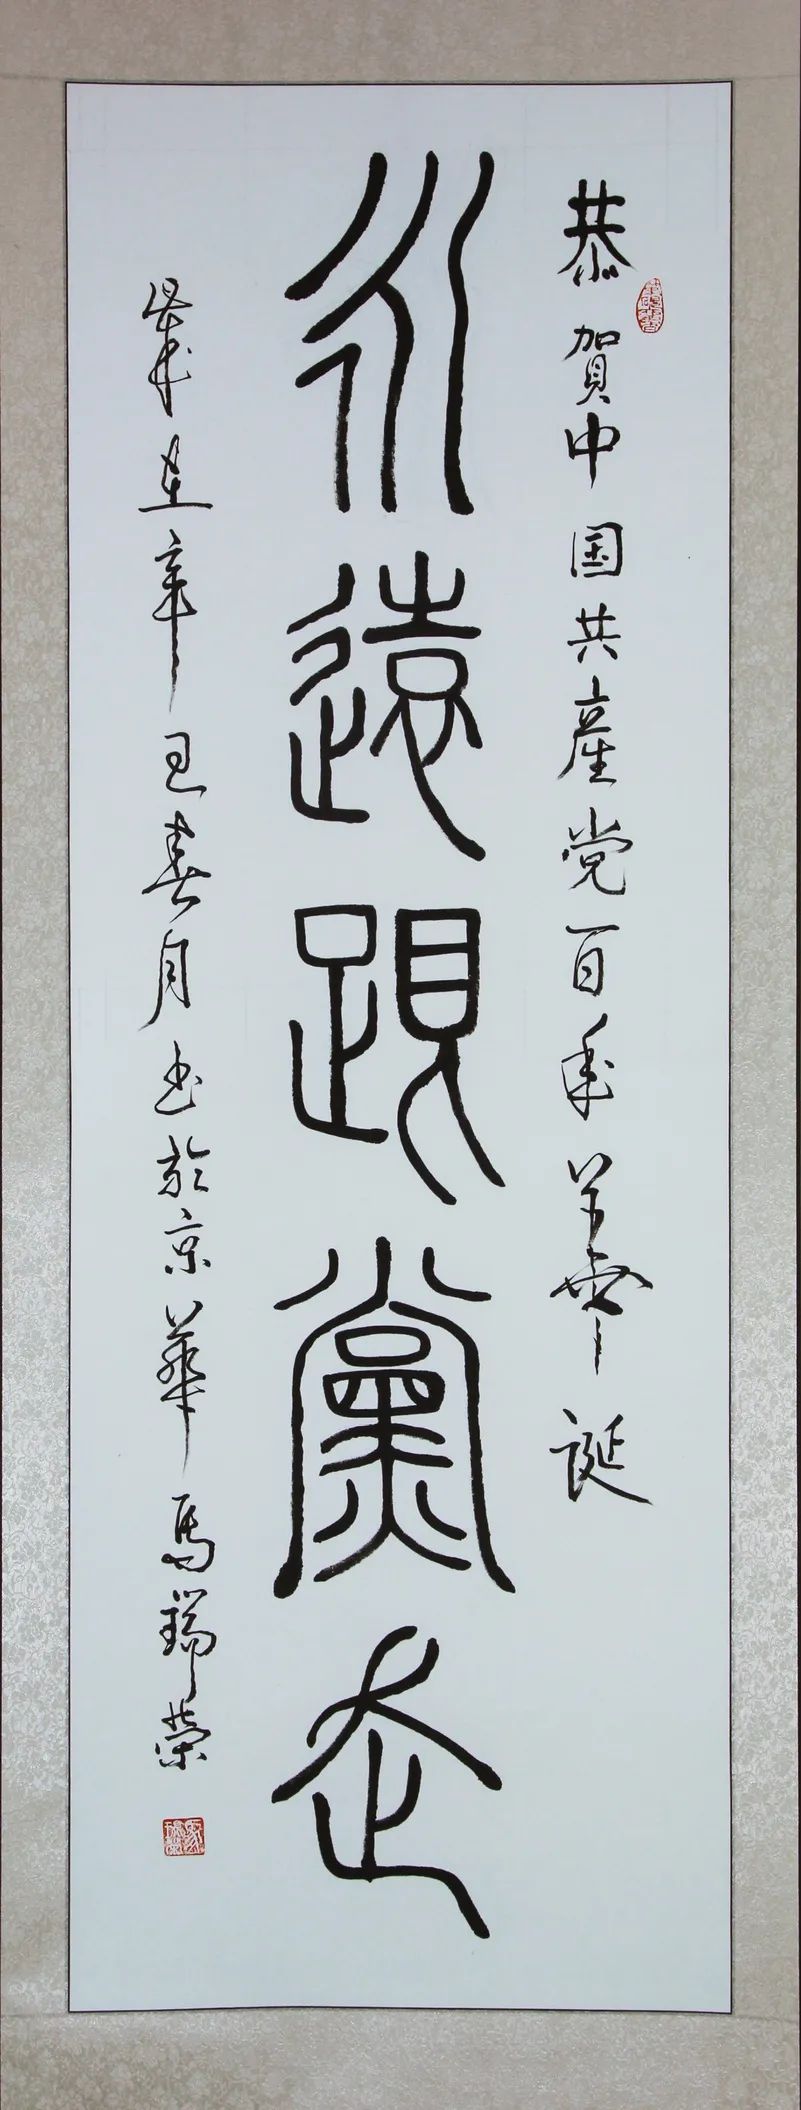 恭賀中国共産党百年華誕
永遠跟黨走
歲在辛丑春月书於京華馬瑞荣